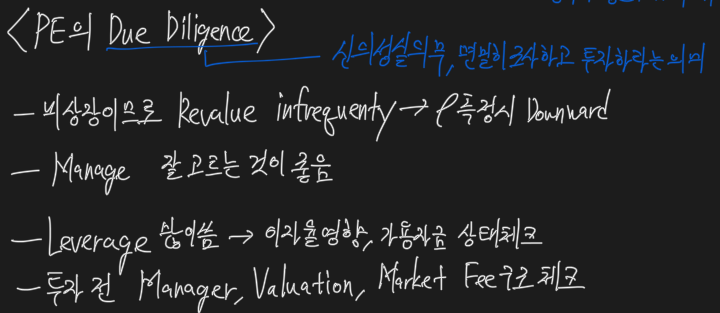 <PE의 Due Diligence>
신의성실의무, 면밀히 조사하고 투자하라는 의미
- 비상장이므로 Revalue infrequenty → ρ 측정시 Downward
- Manage 잘 고르는 것이 좋음
- Leverage 많이씀 → 이자율영향, 가용자금 상태체크
- 투자 전 Manager, Valuation, Market Fee구조 체크